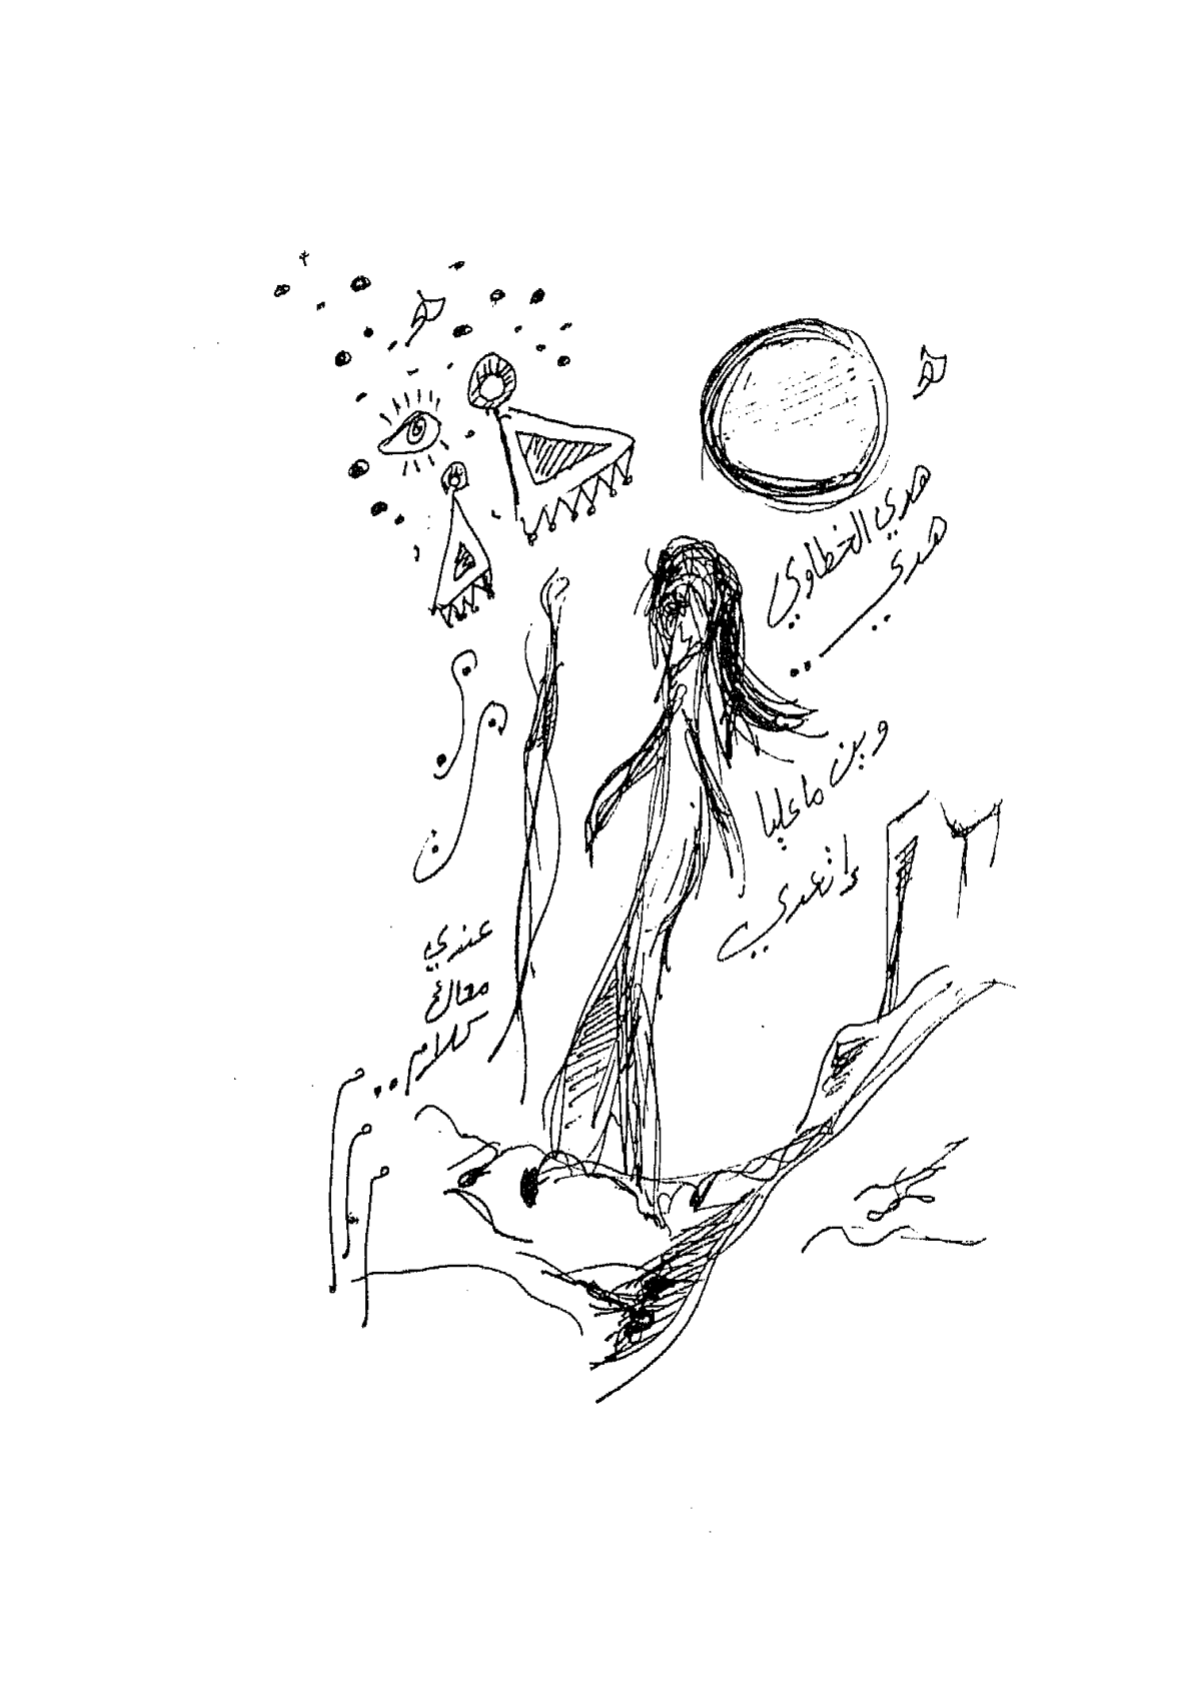 هدي الخطاوي
هدي ..
وين ما عليا
واتعدي
عندي
معاك
كلام ..